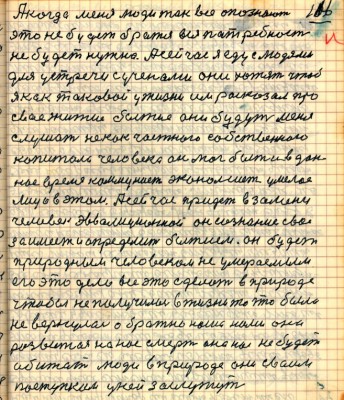 186
А когда меня люди так все опознают
это не будет браться вся потребность
не будет нужна. А сейчас я еду с людьми
для устречи с учеными они хотят чтоб
я как таковой у жизни им рассказал про
свое житие бытие они будут меня
слушат не как частного собственного
копитоль человека он мог быти в дан-
ное время коммунист экономист умелое
лицо в этом. А сейчас придет в замену
человек Эвалиционной он сознание свое
заимеет и определит бытием. он будет
природным человеком не умераемым
его это дело все это сделают в природе
чтобы не получили в жизни то что было
не вернулас обратно
розвитая на нас смерт она на не будет
обижат люди в природе они своим
поступком у ней заслужут